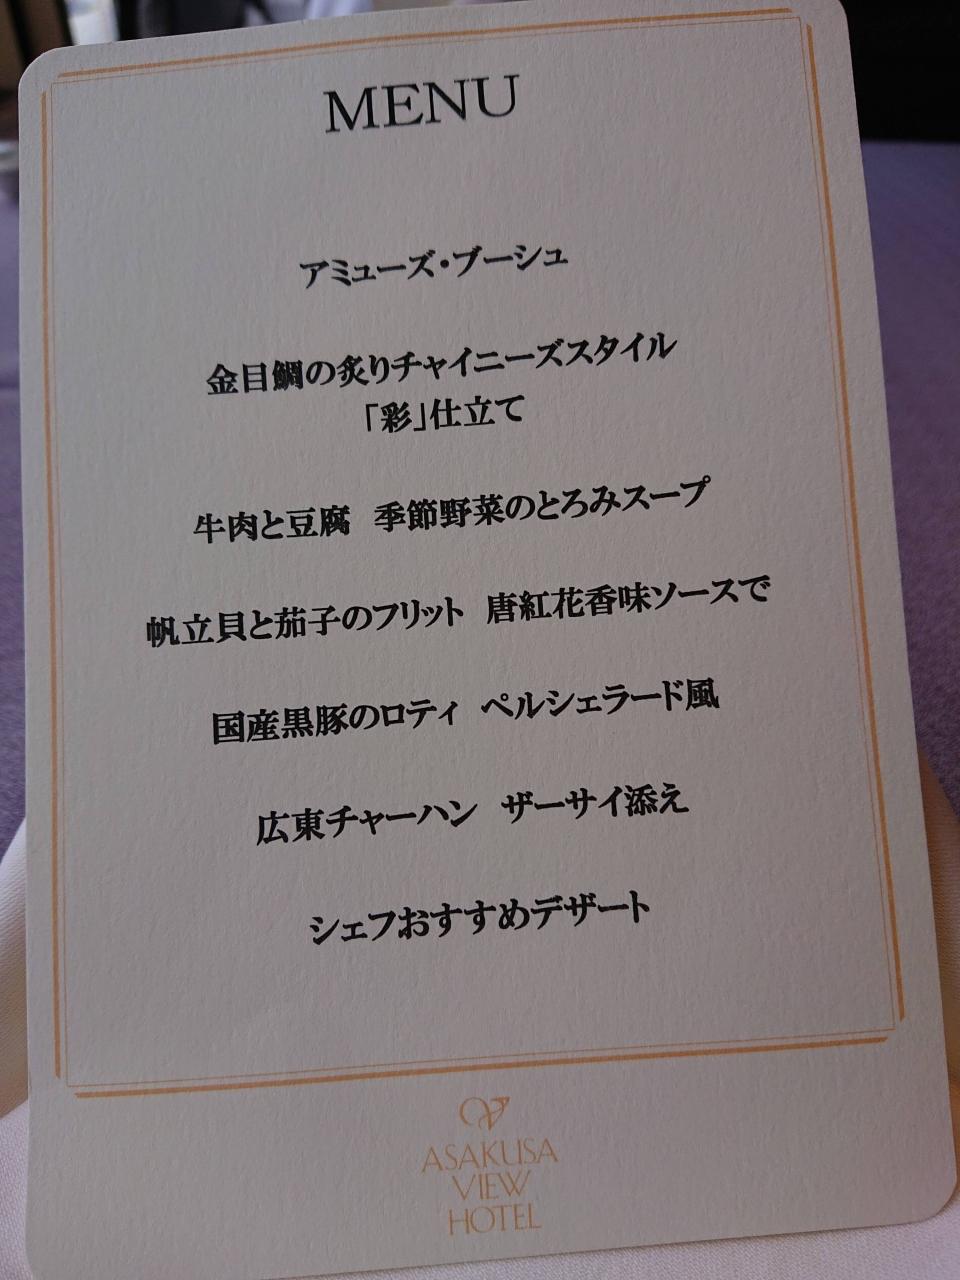 MENU
アミューズ・ブーシュ
金目鯛の炙りチャイニーズスタイル
「彩」仕立て
牛肉と豆腐　季節野菜のとろみスープ
帆立貝と茄子のフリット　唐紅花香味ソースで
国産黒豚のロティ　ペルシェラード風
広東チャーハン　ザーサイ添え
シェフおすすめデザート
ASAKUSA
VIEW
HOTEL